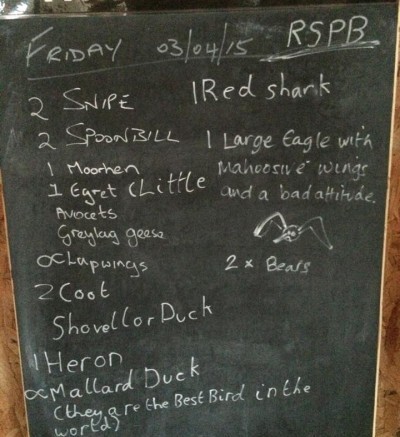 FRIDAY 03/04/15 RSPB
2 SNIPE
2 SPOONBILL
1 Moorhen
1 Egret (Little
Avocets
Greylag geese
∝ Lapwings
2 Coot
Shovellor Duck
1 Heron
∝ Mallard Duck
(they are the Best Bird in the
world)
1 Red shank
1 Large Eagle with
Mahoosive wings
and a bad attitude.
2 x Bears